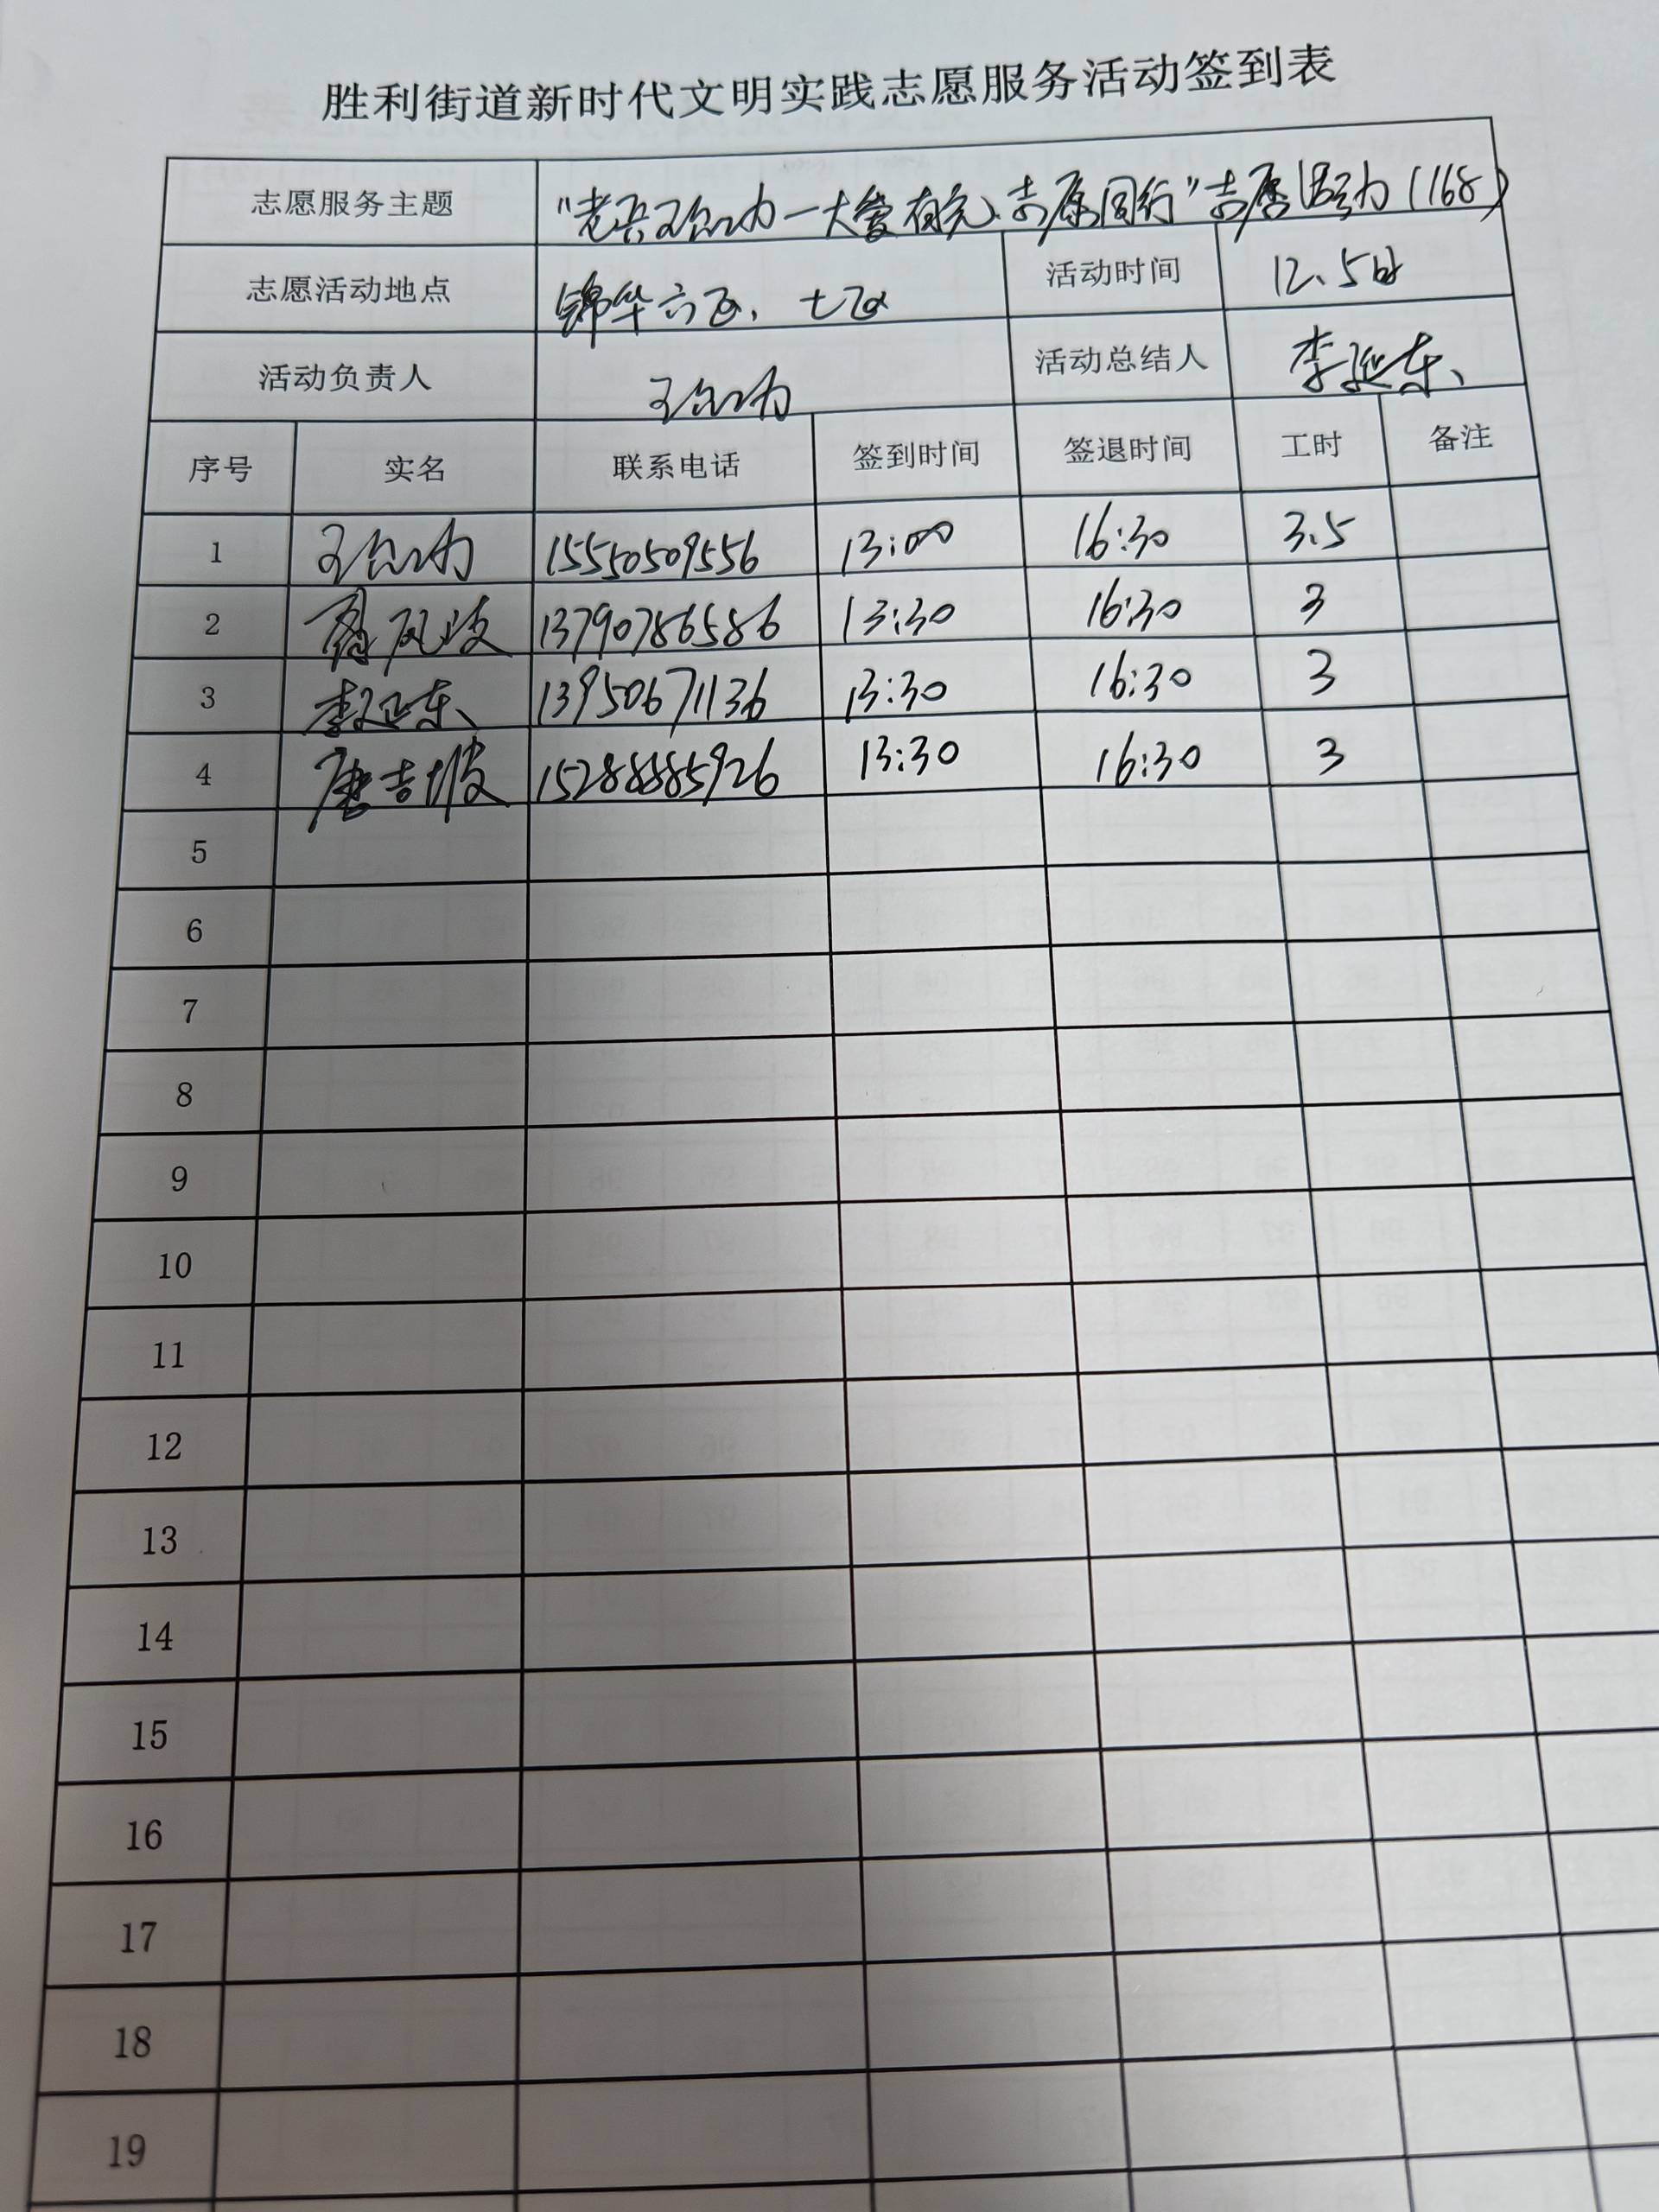 胜利街道新时代文明实践志愿服务活动签到表
志愿服务主题 "老兵 一大爱有完、志愿同行"志愿活动(168)
志愿活动地点 锦华六区、七区 活动时间 12、5日
活动负责人 活动总结人 李延东、
序号 实名 联系电话 签到时间 签退时间 工时 备注
1 15550509556 13:00 16:30 3.5
2 13790786586 13:30 16:30 3
3 李延东、 13950671136 13:30 16:30 3
4 唐吉坡 15288885926 13:30 16:30 3
5
6
7
8
9
10
11
12
13
14
15
16
17
18
19